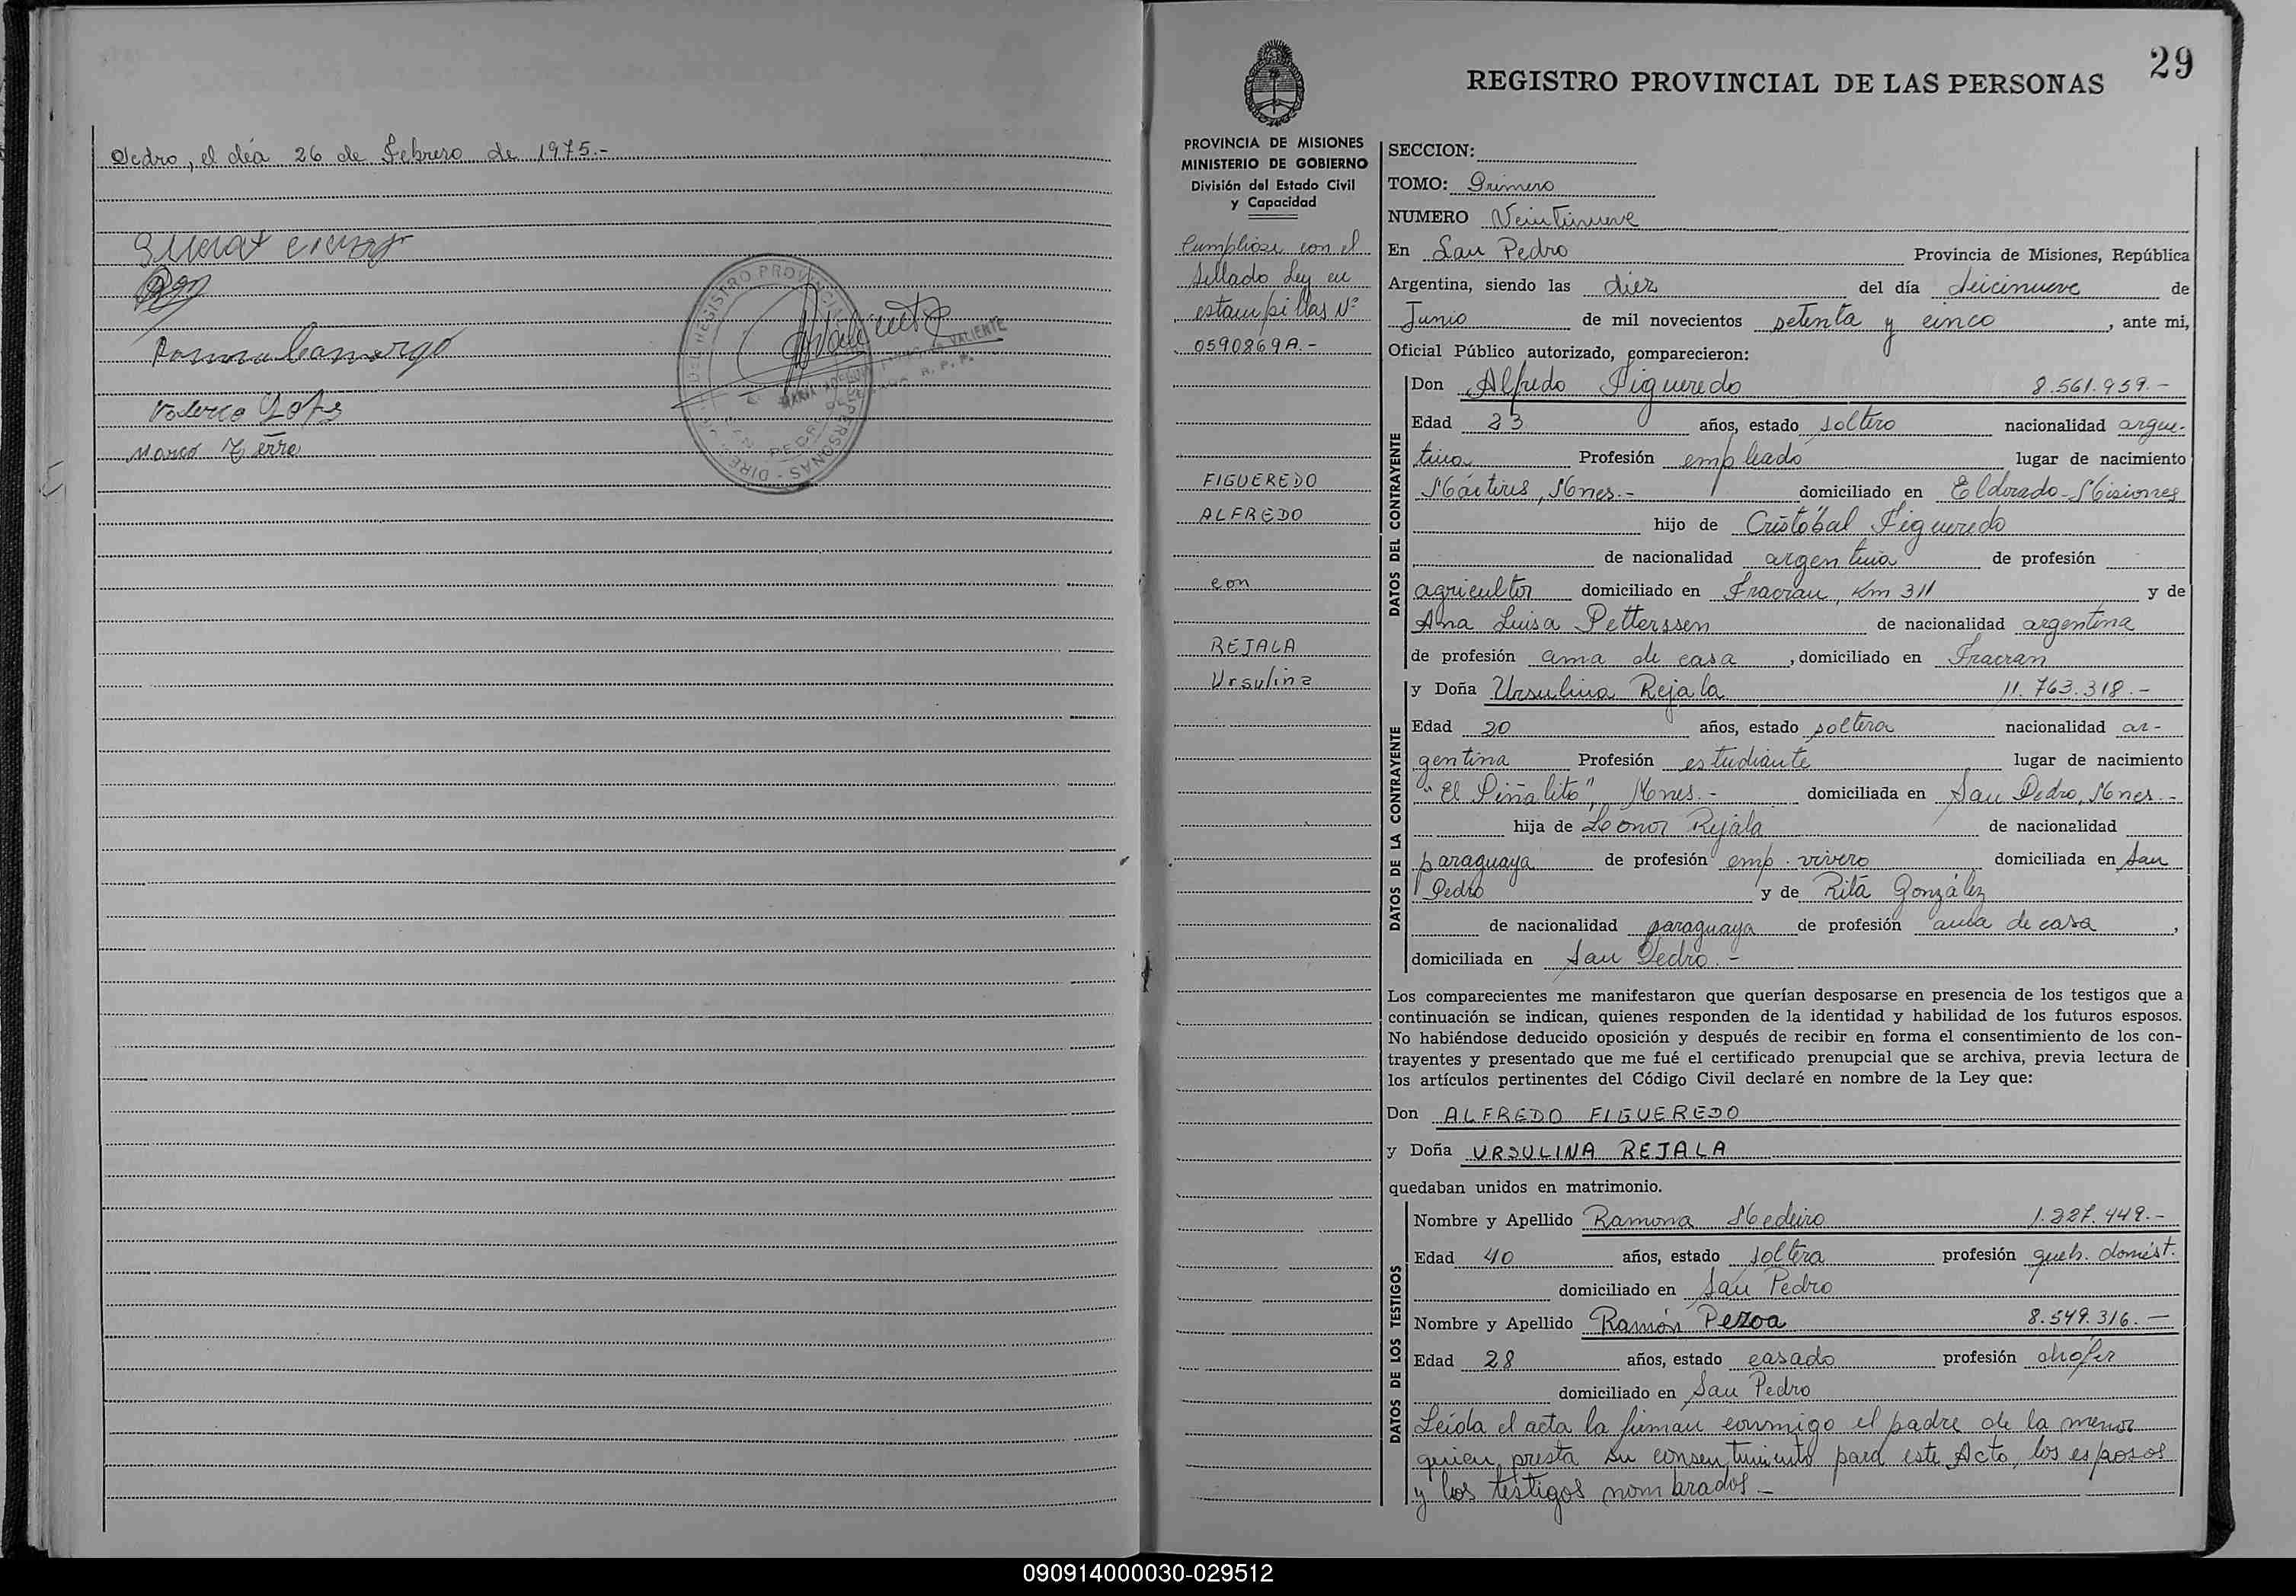 Pedro, el día 26 de Febrero de 1975.-
Ramona Camargo
Marcó
29
REGISTRO PROVINCIAL DE LAS PERSONAS
PROVINCIA DE MISIONES
MINISTERIO DE GOBIERNO
División del Estado Civil
y Capacidad
Cumplióse con el
sellado Ley en
estampillas Nº
0590869A.-
FIGUEREDO
ALFREDO
con
REJALA
Ursulina
SECCION:
TOMO: Primero
NUMERO Veintinueve
En San Pedro Provincia de Misiones, República
Argentina, siendo las diez del día deicinueve de
Junio de mil novecientos setenta y cinco, ante mi,
Oficial Público autorizado, comparecieron:
DATOS DEL CONTRAYENTE
Don Alfredo Figueredo 8.561.959.-
Edad 23 años, estado soltero nacionalidad argen-
tina Profesión empleado lugar de nacimiento
Mártires, Mnes.- domiciliado en Eldorado-Misiones
hijo de Cristóbal Figueredo
de nacionalidad argentina de profesión
agricultor domiciliado en Fracran, Km 311 y de
Ana Luisa Petterssen de nacionalidad argentina
de profesión ama de casa, domiciliado en Fracran
DATOS DE LA CONTRAYENTE
y Doña Ursulina Rejala 11.763.318.-
Edad 20 años, estado soltera nacionalidad ar-
gentina Profesión estudiante lugar de nacimiento
"El Piñalito", Mnes.- domiciliada en San Pedro, Mnes.-
hija de Leonor Rejala de nacionalidad
paraguaya de profesión emp. vivero domiciliada en San
Pedro y de Rita González
de nacionalidad paraguaya de profesión ama de casa,
domiciliada en San Pedro.-
Los comparecientes me manifestaron que querían desposarse en presencia de los testigos que a
continuación se indican, quienes responden de la identidad y habilidad de los futuros esposos.
No habiéndose deducido oposición y después de recibir en forma el consentimiento de los con-
trayentes y presentado que me fué el certificado prenupcial que se archiva, previa lectura de
los artículos pertinentes del Código Civil declaré en nombre de la Ley que:
Don ALFREDO FIGUEREDO
y Doña URSULINA REJALA
quedaban unidos en matrimonio.
DATOS DE LOS TESTIGOS
Nombre y Apellido Ramona Medeiro 1.227.449.-
Edad 40 años, estado soltera profesión queh. domést.
domiciliado en San Pedro
Nombre y Apellido Ramón Pezoa 8.549.316.-
Edad 28 años, estado casado profesión chofer
domiciliado en San Pedro
Leída el acta la firman conmigo el padre de la menor
quien presta su consentimiento para este Acto, los esposos
y los testigos nombrados.-
090914000030-029512